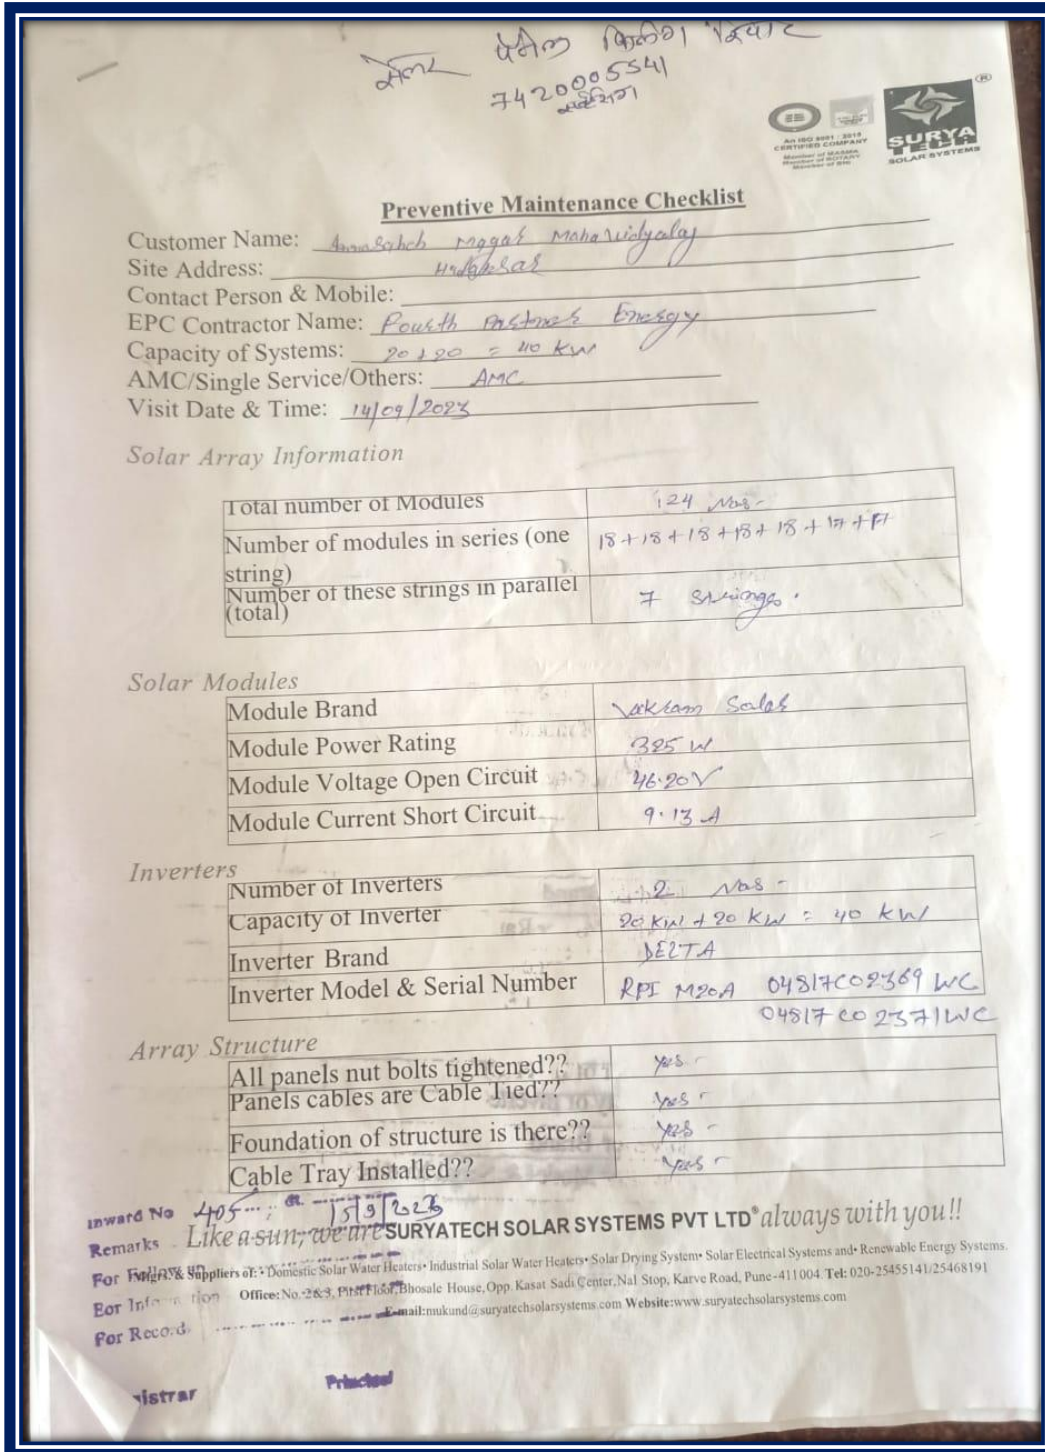 सोलर पॅनेल क्लिनिंग रिपोर्ट
7420005541
An ISO 9001 : 2015
CERTIFIED COMPANY
Member of MASMA
Member of ROTARY
Member of BNI
SURYA
TECH
SOLAR SYSTEMS
Preventive Maintenance Checklist
Customer Name: Annasaheb Magar Mahavidyalay
Site Address: Hadapsar
Contact Person & Mobile:
EPC Contractor Name: Fourth Partner Energy
Capacity of Systems: 20+20 = 40 KW
AMC/Single Service/Others: AMC
Visit Date & Time: 14/09/2023
Solar Array Information
Total number of Modules 124 Nos-
Number of modules in series (one string) 18+18+18+18+18+17+17
Number of these strings in parallel (total) 7 Strings.
Solar Modules
Module Brand Vikram Solar
Module Power Rating 325 W
Module Voltage Open Circuit 46.20V
Module Current Short Circuit 9.13 A
Inverters
Number of Inverters 2 Nos -
Capacity of Inverter 20 KW + 20 KW = 40 KW
Inverter Brand DELTA
Inverter Model & Serial Number RPI M20A 04817C02369WC
04817C02371WC
Array Structure
All panels nut bolts tightened?? Yes -
Panels cables are Cable Tied?? Yes -
Foundation of structure is there?? Yes -
Cable Tray Installed?? Yes -
Inward No 405 dt. 15/9/2023
Remarks
Like a sun, we are SURYATECH SOLAR SYSTEMS PVT LTD® always with you!!
For Follow up
Mfgrs. & Suppliers of: • Domestic Solar Water Heaters• Industrial Solar Water Heaters• Solar Drying System• Solar Electrical Systems and• Renewable Energy Systems.
For Information
Office: No.-2&3, First Floor, Bhosale House, Opp. Kasat Sadi Center, Nal Stop, Karve Road, Pune-411004 Tel: 020-25455141/25468191
E-mail:mukund@suryatechsolarsystems.com Website:www.suryatechsolarsystems.com
For Record
istrar Principal